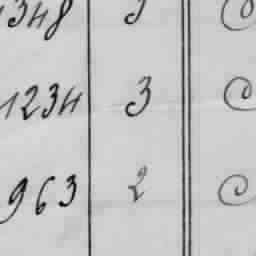 1348 3 @
1234 3 @
963 2 @